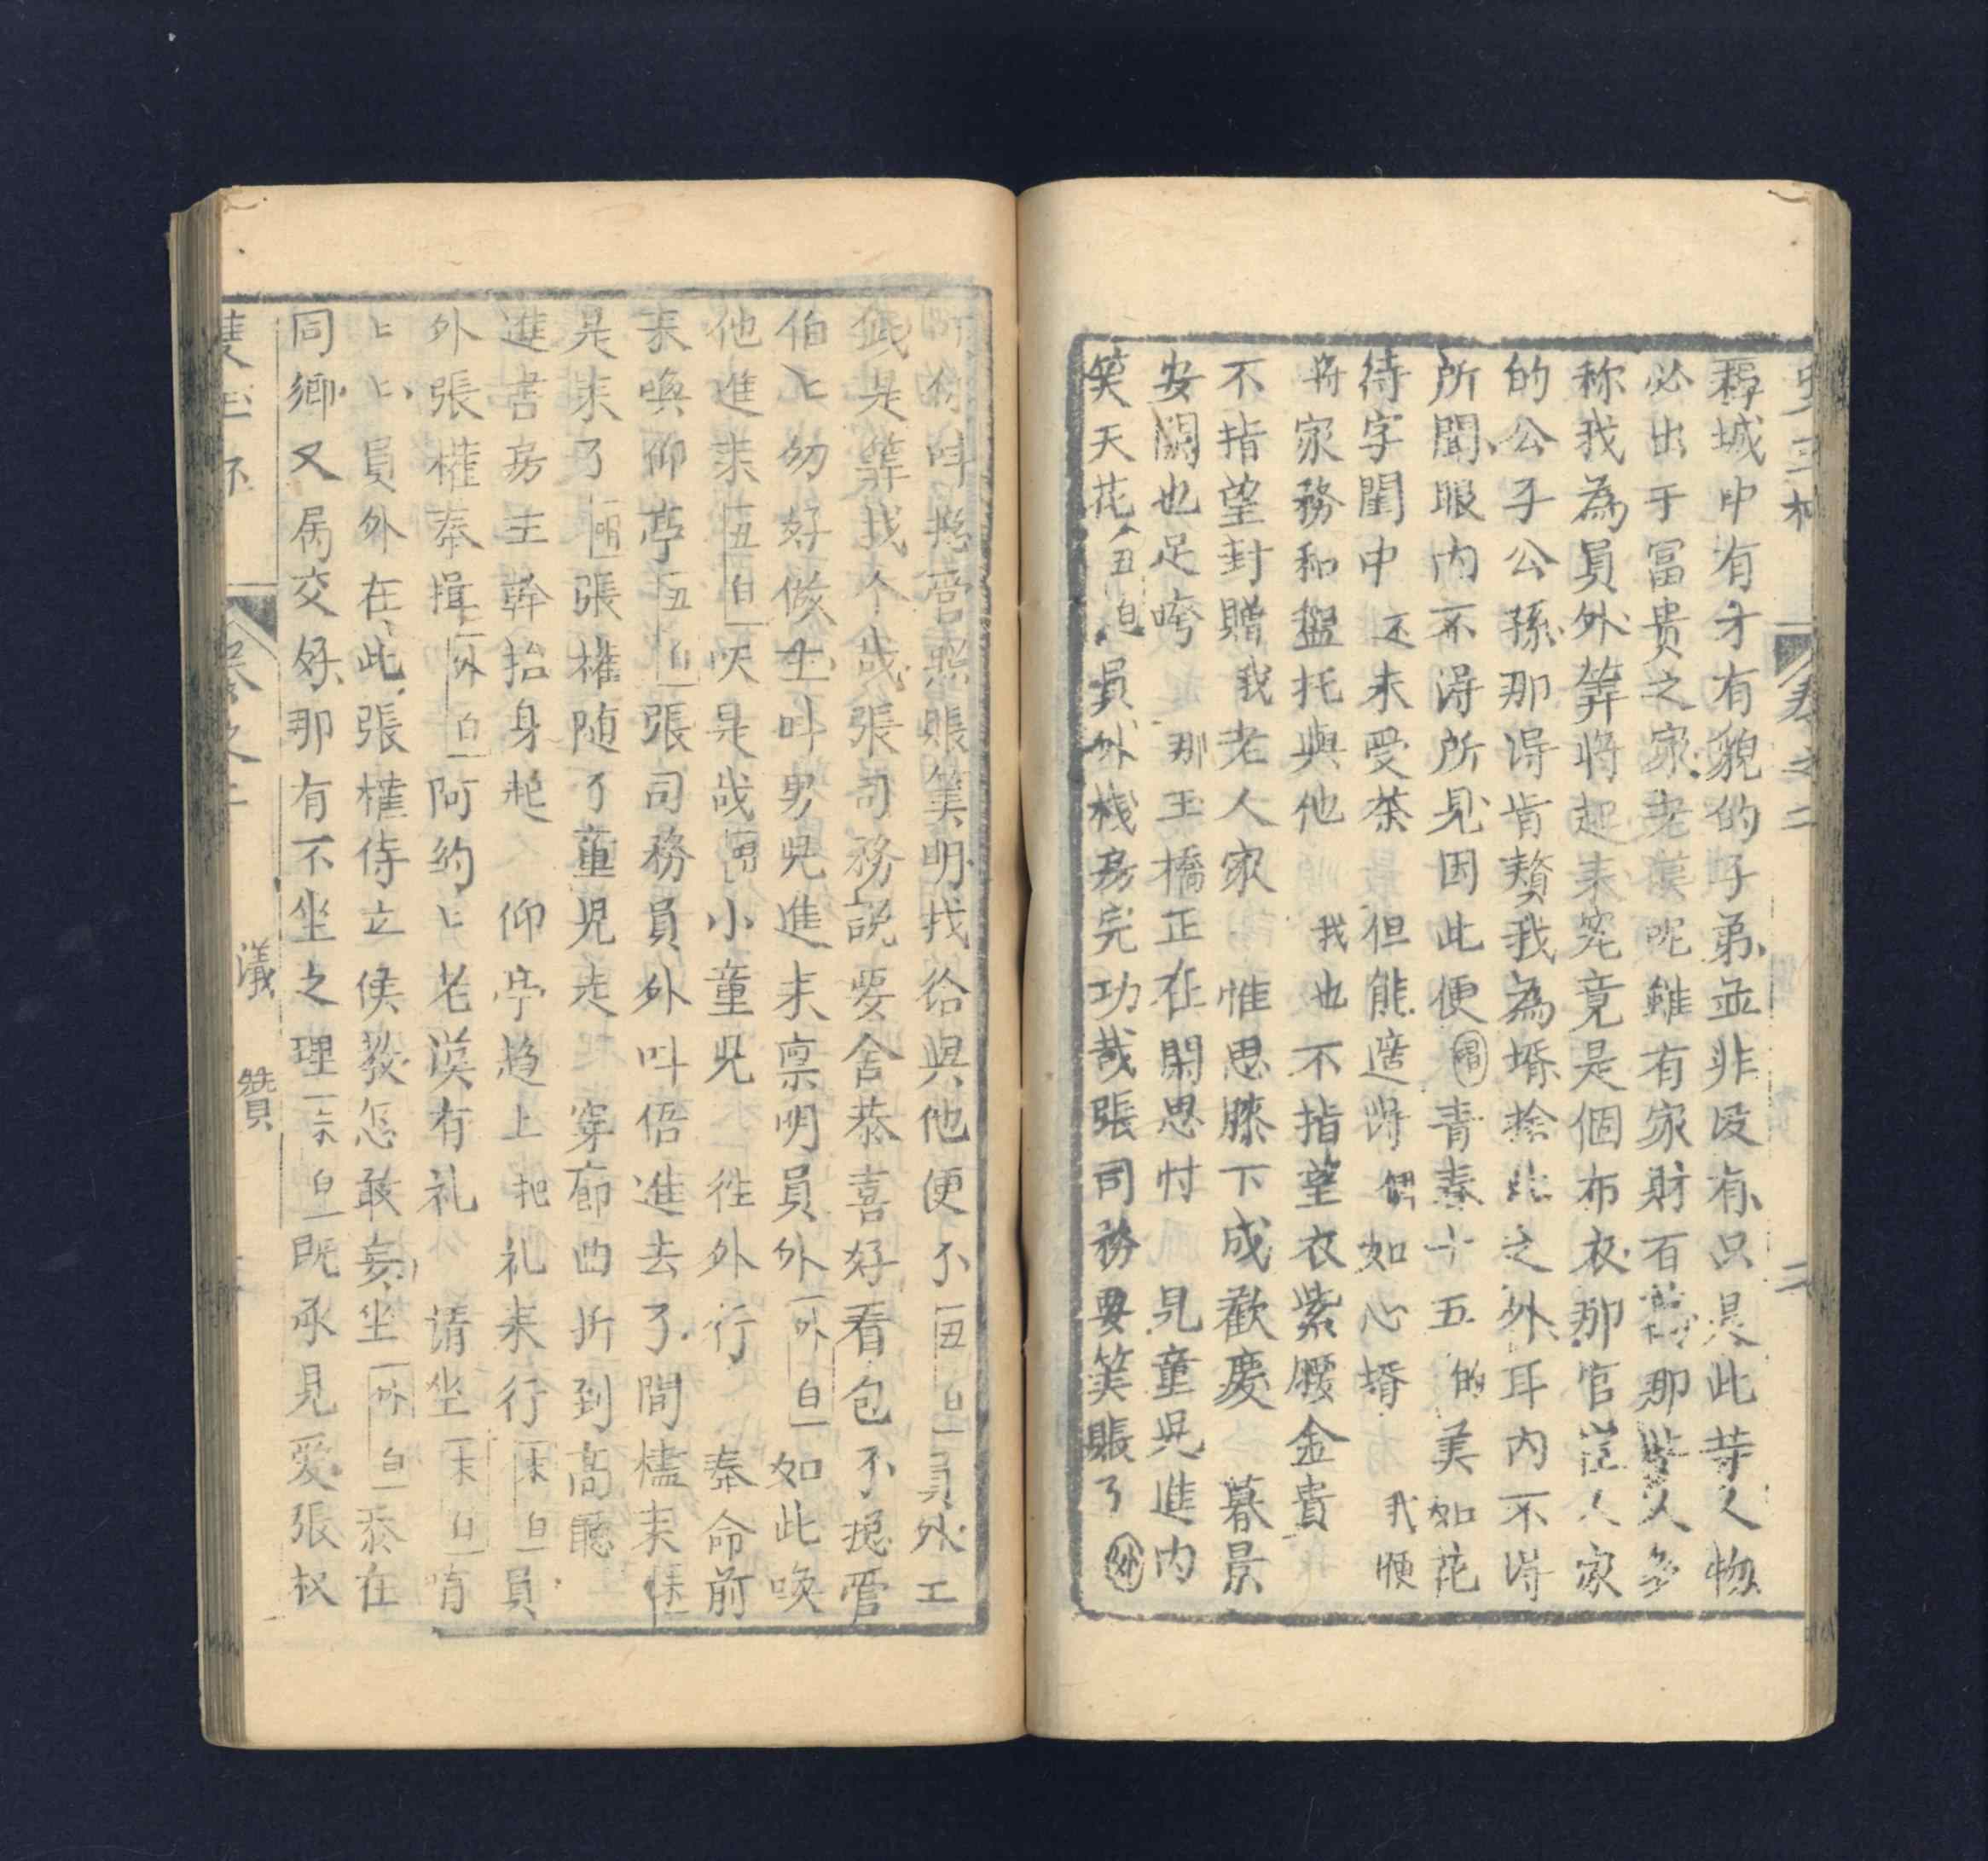 卷之二
二
城中有才有貌的子弟並非没有只是此等人物
必出于冨贵之家老漢呢雖有家財百萬那些人多
称我為員外筭将起来究竟是個布衣那官宦人家
的公子公孫那淂肯贅我為壻除此之外耳内不淂
所聞眼内不淂所見因此便唱青春十五的美如花
待字閨中还未受茶但能䢎将個如心壻我便
将家務和盤托與他我也不指望衣紫腰金貴
不指望封贈我老人家惟思膝下成歡慶暮景
安閑也足誇那王橋正在閑思忖見童兒進内
笑天花丑白員外栈房完功哉張司務要筭賬了外
你呌管照賬筭明找给與他便个丑白員外工
是筭找个哉張司務説要舍恭喜好看包不挽管
伯匕勿好做生呌男兒進来禀明員外外白如此喚
他進来丑白哎是哉唱小童兒往外行奉命前
来喚仰亭丑白張司務員外呌俉進去了末
是来了唱張權随了童児走穿廊曲折到髙廳
進書房主幹抬身起仰亭趋上把礼来行末白員
外張權奉揖外白阿約匕老漢有礼请坐末白唷
匕匕員外在此張權侍立候教怎敢妄坐外白忝在
同鄉又属交好那有不坐之理末白既承見爱張权
卷之二
議 贊